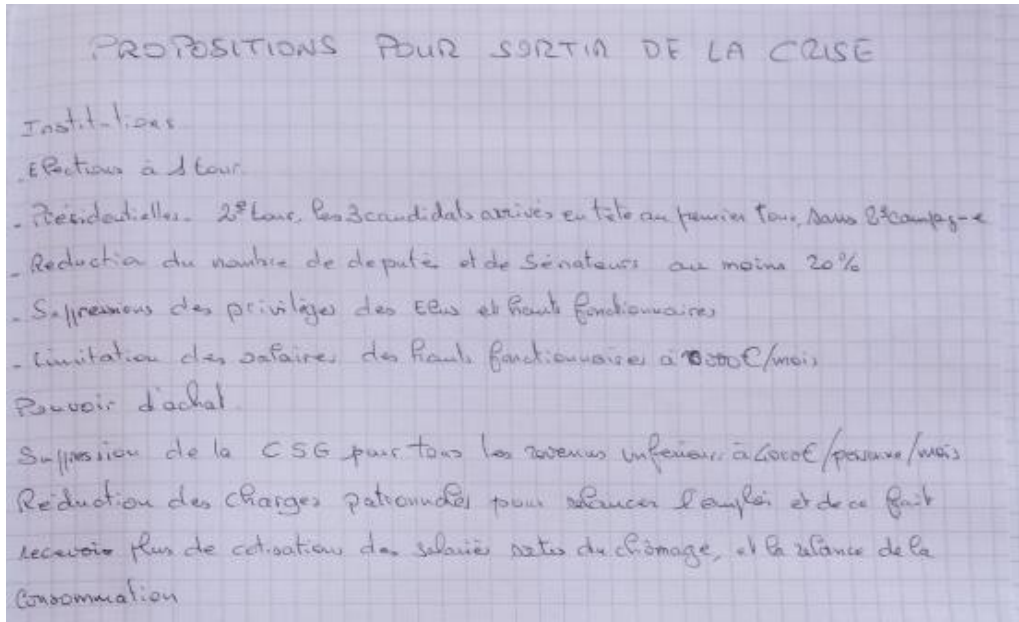 PROPOSITIONS POUR SORTIR DE LA CRISE
Institutions
. Elections à 1 tour
- Présidentielles. 2e tour, les 3 candidats arrivés en tête au premier tour, sans 2e campagne
- Réduction du nombre de deputé et de Sénateurs au moins 20%
- Suppressions des privilèges des Elus et hauts fonctionnaires
- Limitation des salaires des hauts fonctionnaires à 10 000€/mois
Pouvoir d'achat
Suppression de la CSG pour tous les revenus inférieurs à /personne/mois
Réduction des charges patronales pour relancer l'emploi et de ce fait
recevoir plus de cotisation des salariés sortis du chômage, et la relance de la
Consommation